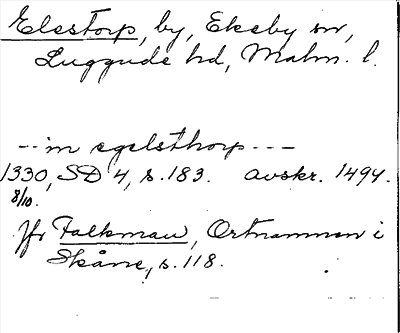 Elestorp, by, Ekeby sn,
Luggude hd, Malm. l.
--in egelsthorp---
1330, SD 4, s. 183. avskr. 1494.
8/10.
Jfr Falkman, Ortnamnen i
Skåne, s. 118.